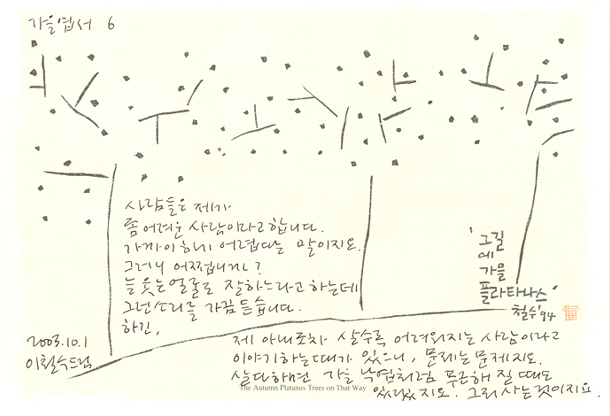 가을엽서 6
사람들은 제가
좀 어려운 사람이라고 합니다.
가까이 하기 어렵다는 말이지요.
그러니 어쩝니까?
늘 웃는 얼굴로 잘 하느라고 하는데
그런 소리를 가끔 듣습니다.
하긴,
'그 길
에 가을
플라타나스'
철수 '94
2003.10.1
이철수 드림
제 아내조차 살수록 어려워지는 사람이라고
이야기하는 때가 있으니, 문제는 문제지요.
살다 하면 가을 낙엽처럼 푸근해 질 때도
있겠지요. 그리 사는 것이지요.
The Autumn Platanus Trees on That Way